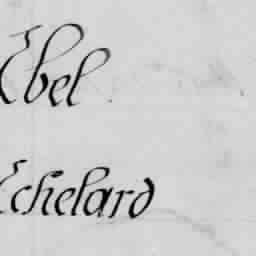 Ebel
Echelard